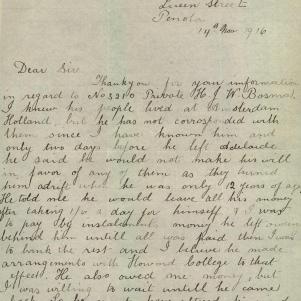 Queen Street
Penola
14th Nov 1916
Dear Sir
Thankyou for your information
in regard to No 3210 Private H J W Bosma
I knew his people lived at Amsterdam
Holland, but he has not corresponded with
them since I have known him and
only two days before he left Adelaide
he said he would not make his will
in favor of any of them as they turned
him adrift when he was only 12 years of age
He told me he would leave all his money
after taking 1/0 a day for himself & I was
to pay by instalments money he left owing
behind him untill all was paid then I was
to bank the rest and I believe he made
arrangements with Howard College to that
effect. He also owed me money, but
I was willing to wait untill he came